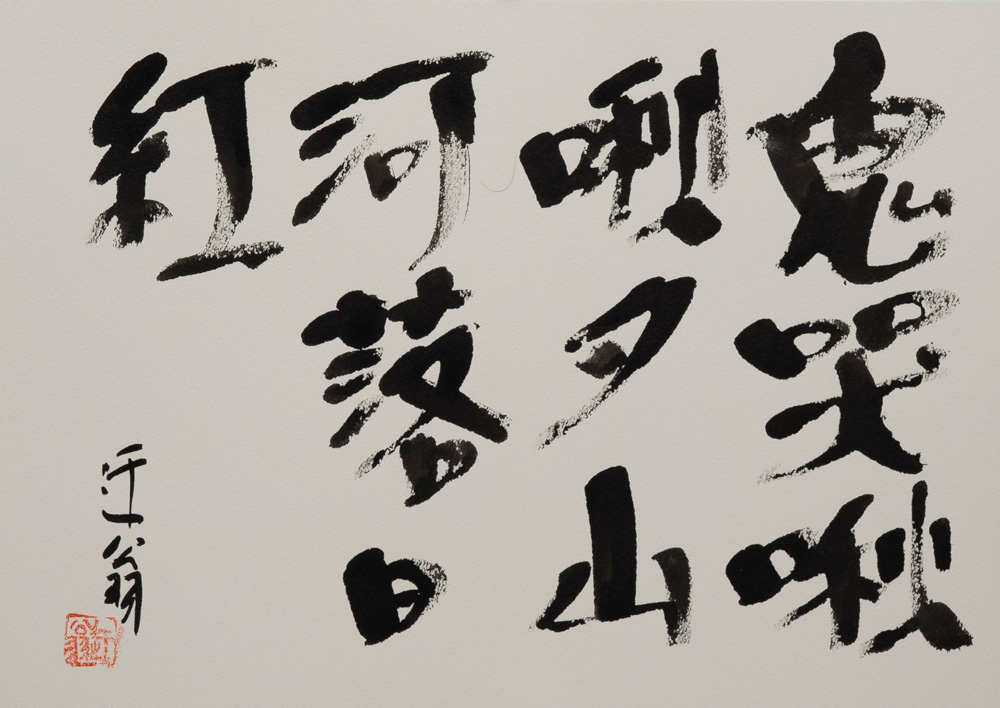 鬼哭啾
啾夕山
河落日
紅
翁